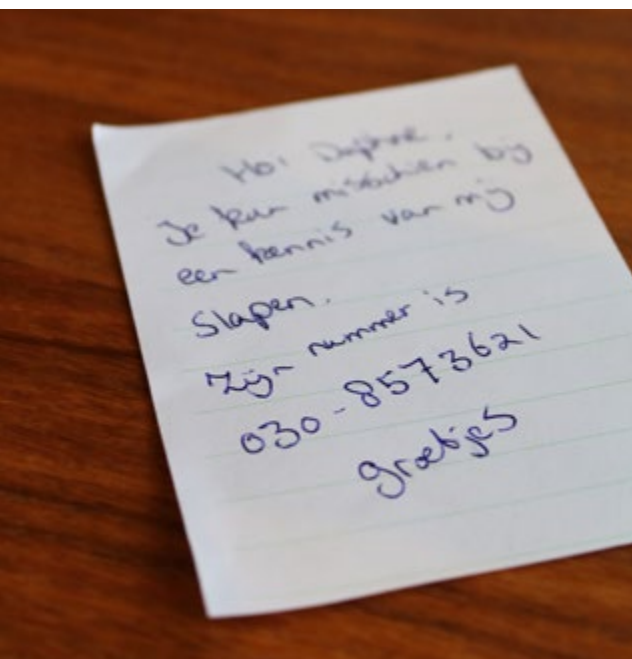 Hoi Daphne,
Je kun misschien bij
een kennis van mij
slapen.
Zijn nummer is
030-8573621
groetjes